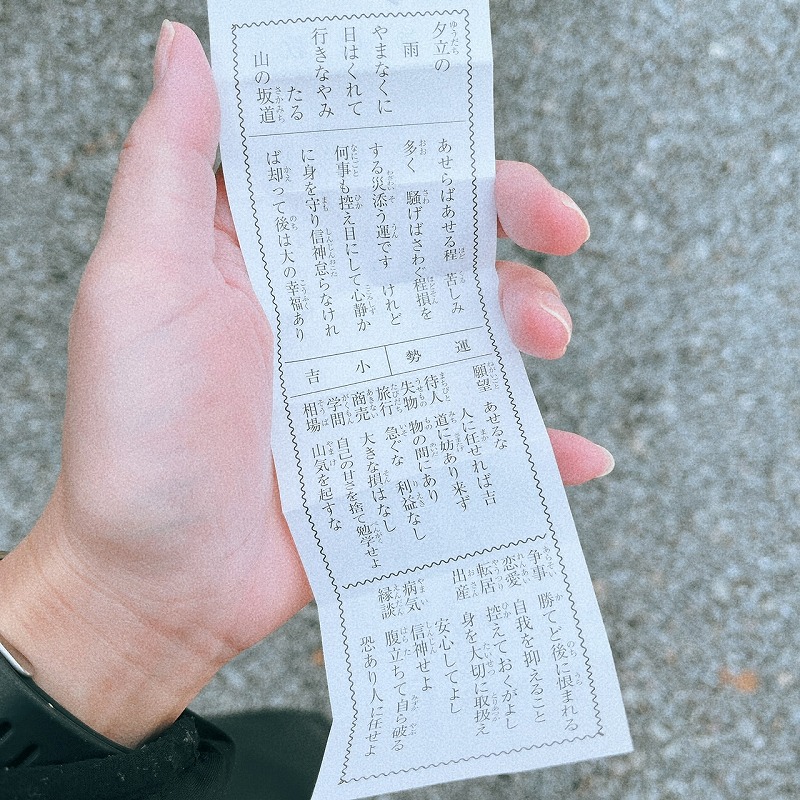 夕立の
雨
やまなくに
日はくれて
行きなやみ
たる
山の坂道
あせらばあせる程 苦しみ
多く 騒げばさわぐ程損を
する災添う運です けれど
何事も控え目にして心静か
に身を守り信神怠らなけれ
ば却って後は大の幸福あり
運勢
小吉
願望 あせるな
人に任せれば吉
待人 道に妨あり来ず
失物 物の間にあり
旅行 急ぐな 利益なし
商売 大きな損はなし
学問 自己の甘さを捨て勉学せよ
相場 山気を起すな
争事 勝てど後に恨まれる
恋愛 自我を抑えること
転居 控えておくがよし
出産 身を大切に取扱え
安心してよし
病気 信神せよ
縁談 腹立ちて自ら破る
恐あり人に任せよ